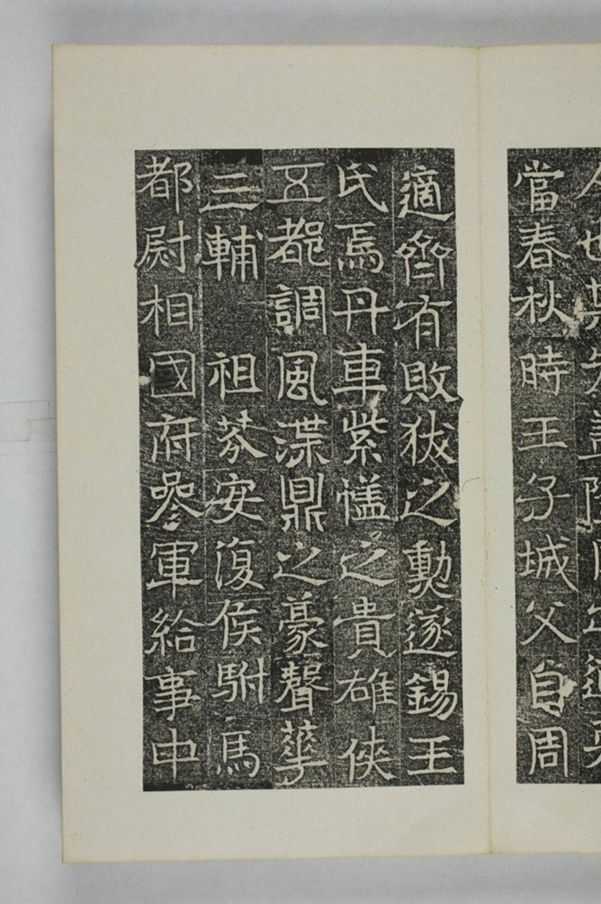 人也其先
當春秋時王子城父自周
適齊有敗狄之勳遂錫王
氏焉丹車紫蓋之貴雄俠
五都調風渫鼎之豪聲華
三輔　祖芬安復侯駙馬
都尉相國府參軍給事中